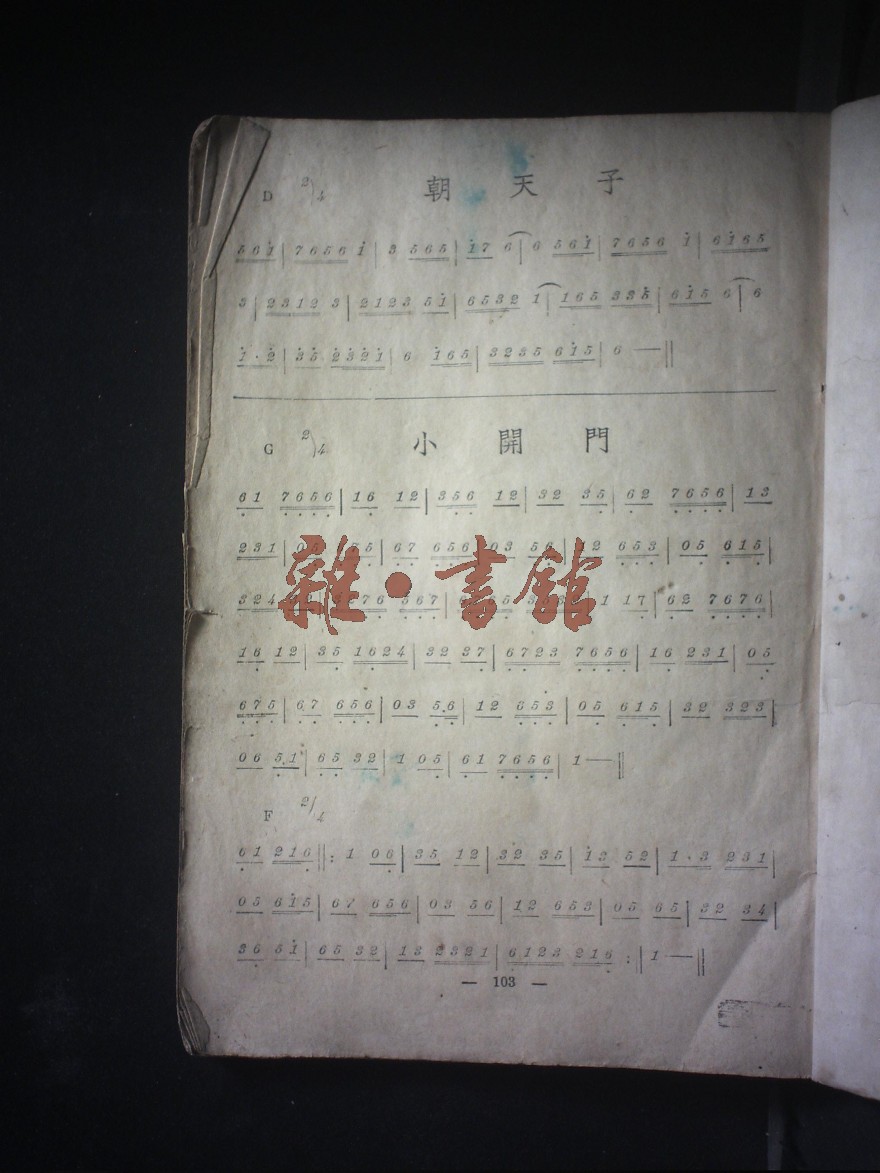 D 2/4 朝天子
5 6 i | 7 6 5 6 i | 3 5 6 5 | i 7 6 | 6 5 6 i | 7 6 5 6 i | 6 i 6 5
3 | 2 3 1 2 3 | 2 1 2 3 5 i | 6 5 3 2 1 | 1 6 5 3 3 5 | 6 i 5 6 | 6
i · 2 | 3 5 2 3 2 i | 6 i 6 5 | 3 2 3 5 6 i 5 | 6 — ||
G 2/4 小開門
6 1 7 6 5 6 | 1 6 1 2 | 3 5 6 1 2 | 3 2 3 5 | 6 2 7 6 5 6 | 1 3
2 3 1 | 0 5 7 5 | 6 7 6 5 6 0 3 5 6 | 1 2 6 5 3 | 0 5 6 1 5 |
雜·書館
3 2 4 7 6 5 6 7 | 1 1 7 | 6 2 7 6 7 6 |
1 6 1 2 | 3 5 1 6 2 4 | 3 2 3 7 | 6 7 2 3 7 6 5 6 | 1 6 2 3 1 | 0 5
6 7 5 | 6 7 6 5 6 | 0 3 5 6 | 1 2 6 5 3 | 0 5 6 1 5 | 3 2 3 2 3 |
0 6 5 1 | 6 5 3 2 | 1 0 5 | 6 1 7 6 5 6 | 1 — ||
F 2/4
6 1 2 1 6 ||: 1 0 6 | 3 5 1 2 | 3 2 3 5 | i 3 5 2 | 1 · 3 2 3 1 |
0 5 6 i 5 | 6 7 6 5 6 | 0 3 5 6 | 1 2 6 5 3 | 0 5 6 5 | 3 2 3 4 |
3 6 5 i | 6 5 3 2 | 1 3 2 3 2 1 | 6 1 2 3 2 1 6 :| 1 — ||
— 103 —